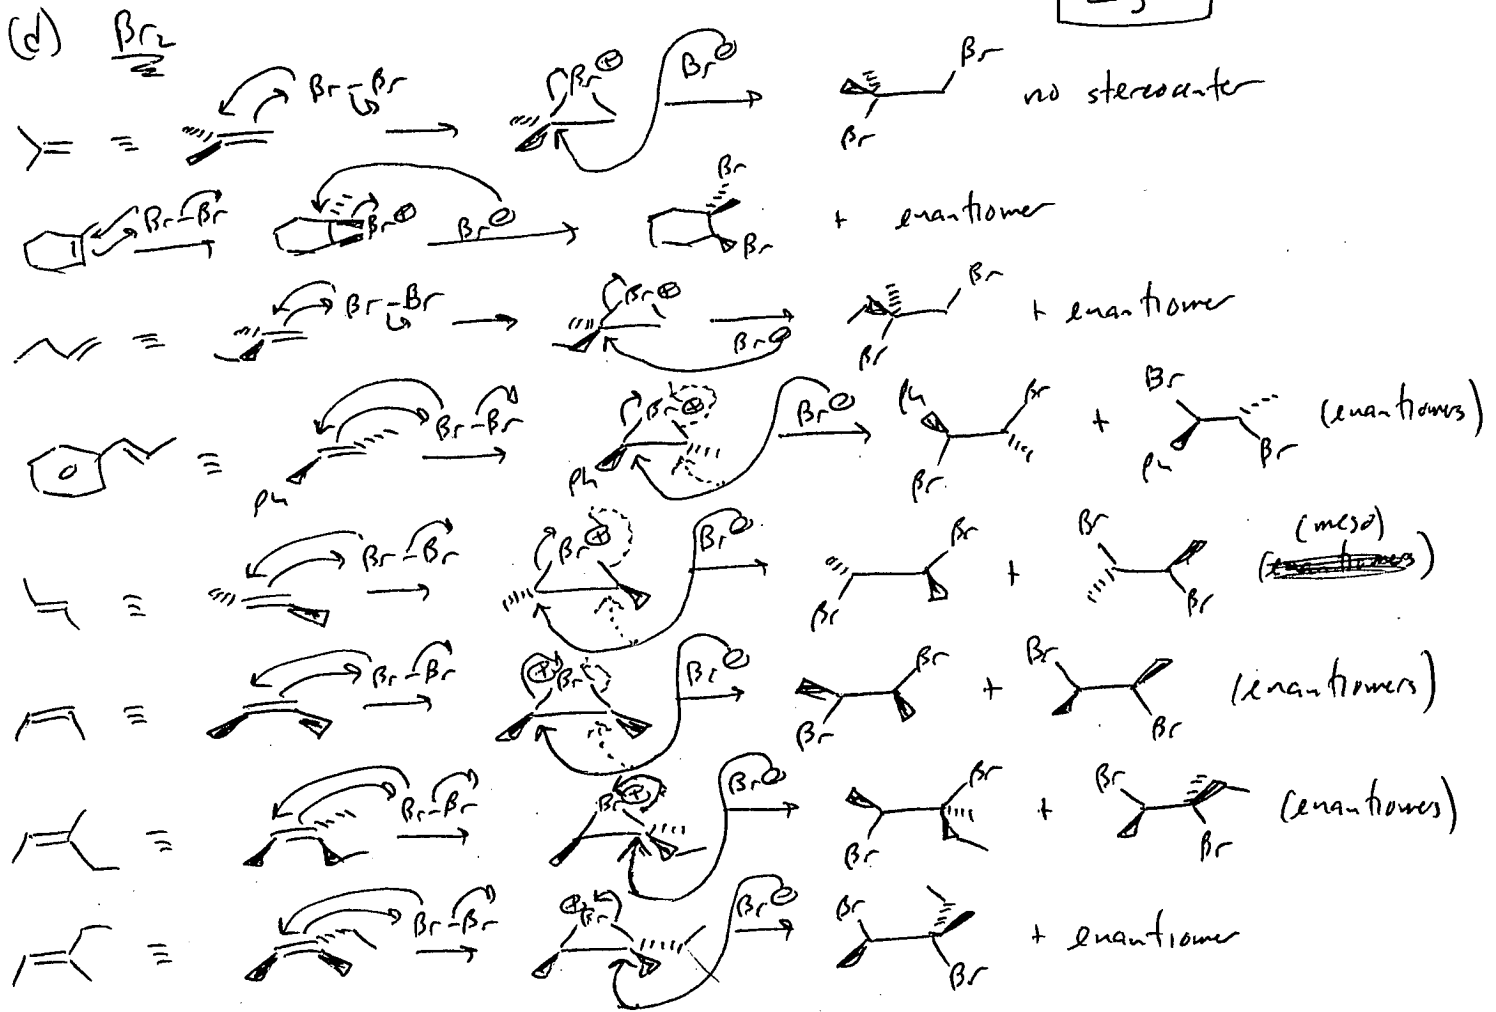 (d) Br₂
Br-Br Br⊕ Br⊖ Br Br no stereocenter
Br-Br Br⊕ Br⊖ Br Br + enantiomer
Br-Br Br⊕ Br⊖ Br Br + enantiomer
Ph Br-Br Ph Br⊕ Br⊖ Ph Br Br + Br Ph Br (enantiomers)
Br-Br Br⊕ Br⊖ Br Br + Br Br (meso)
Br-Br ⊕Br Br⊖ Br Br + Br Br (enantiomers)
Br-Br Br⊕ Br⊖ Br Br + Br Br (enantiomers)
Br-Br ⊕Br Br⊖ Br Br + enantiomer